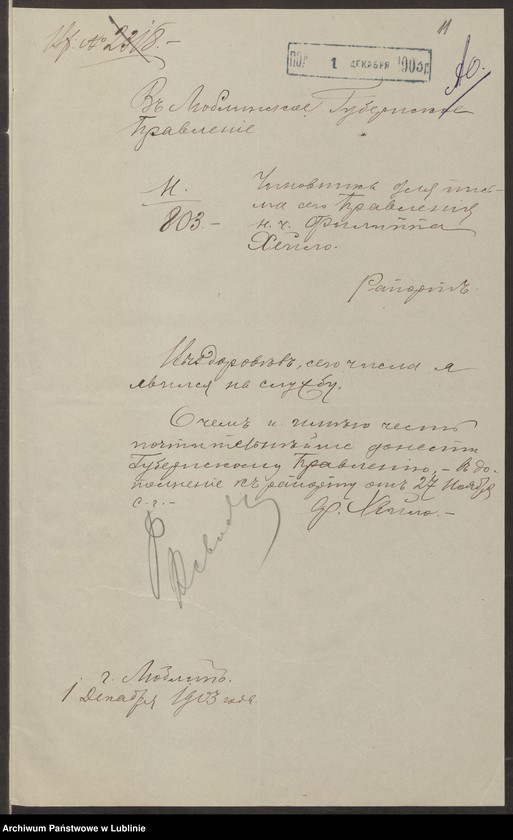 11
ПОЛ 1 ДЕКАБРЯ 1903 г.
Въ Люблинское Губернское
Правленіе
М.
803.-
Чиновника для пись-
ма сего Правленія
н. ч. Филиппа
Хейло.
Рапортъ.
Выздоровѣвъ, сего числа я
явился на службу.
О чемъ и имѣю честь
почтительнѣйше донести
Губернскому Правленію, - въ до-
полненіе къ рапорту отъ 27 Ноября
с. г. -
Ф. Хейло. -
г. Люблинъ.
1 Декабря 1903 года
Archiwum Państwowe w Lublinie